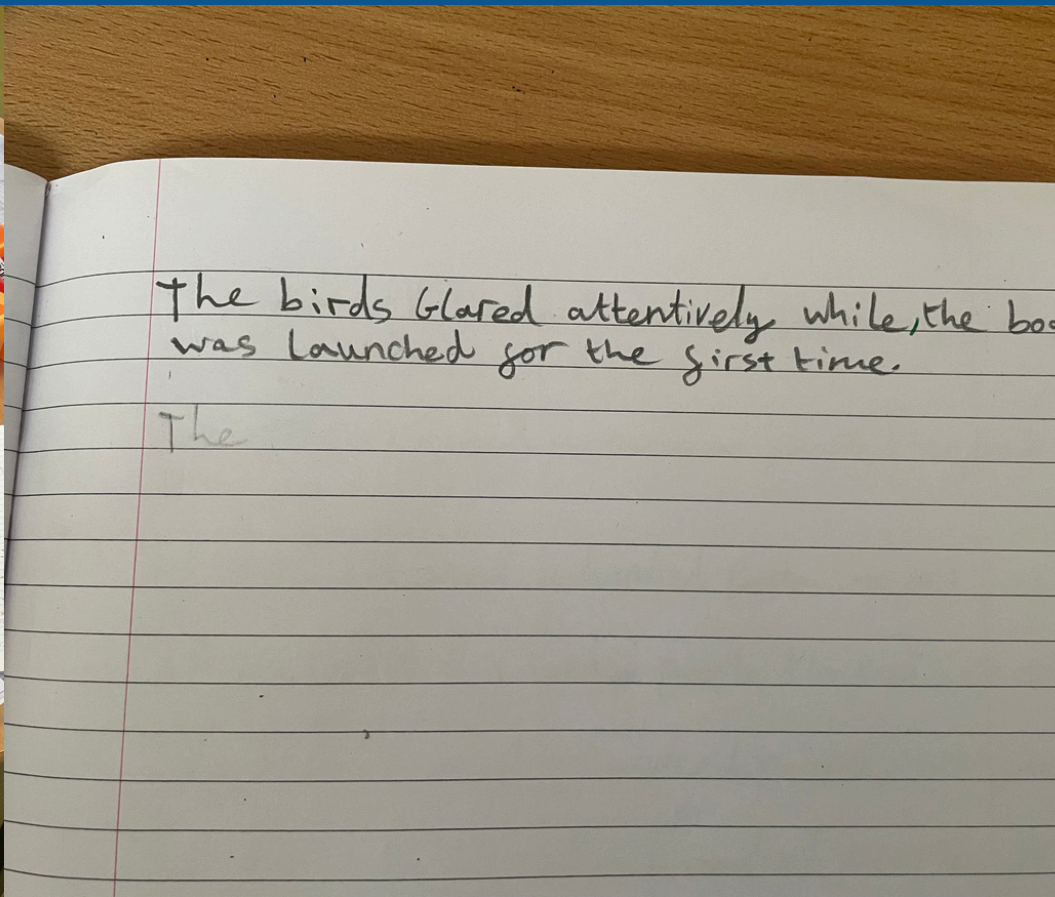 The birds Glared attentively while, the
was launched for the first time.
The